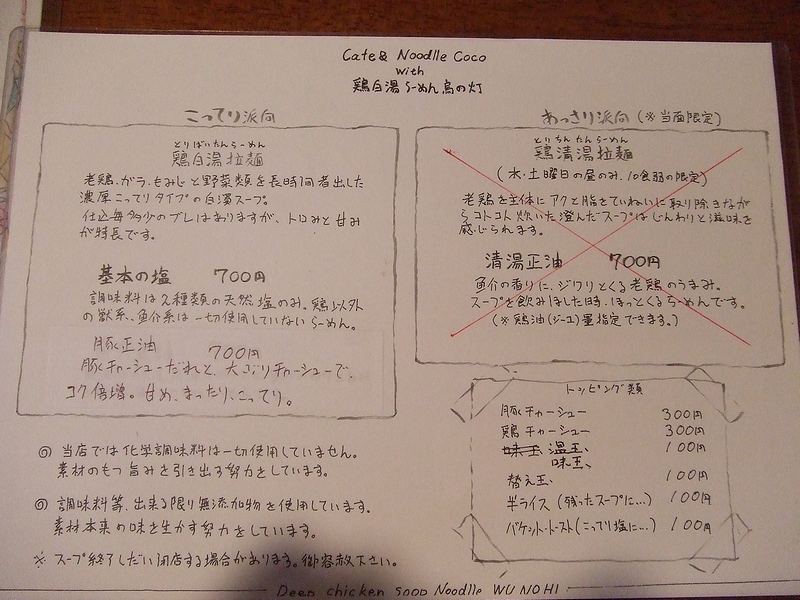 Cafe & Noodlle Coco
with
鶏白湯らーめん烏の灯
こってり派向
とりぱいたんらーめん
鶏白湯拉麺
老鶏.ガラ.もみじと野菜類を長時间煮出した
濃厚こってりタイプの白濁スープ。
仕込毎多少のブレはありますが、トロみと甘み
が特長です。
基本の塩 700円
調味料は2種類の天然塩のみ。鶏以外
の獣系、魚介系は一切使用していないらーめん。
豚正油 700円
豚チャーシューだれと、大ぶりチャーシューで、
コク倍増。甘め、まったり、こってり。
◎ 当店では化学調味料は一切使用していません。
素材のもつ旨みを引き出す努力をしています。
◎ 調味料等、出来る限り無添加物を使用しています。
素材本来の味を生かす努力をしています。
※ スープ終了しだい閉店する場合があります。御容赦下さい。
あっさり派向(※当面限定)
とりちんたんらーめん
鶏清湯拉麺
(水・土曜日の昼のみ、10食弱の限定)
老鶏を主体にアクと脂をていねいに取り除きなが
らコトコト炊いた澄んだスープはじんわりと滋味を
感じられます。
清湯正油 700円
魚介の香りに、ジワリとくる老鶏のうまみ。
スープを飲みほした時、ほっとくるらーめんです。
(※鶏油(ジーユ)量指定できます。)
トッピング類
豚チャーシュー 300円
鶏チャーシュー 300円
味玉 温玉、 100円
味玉、
替え玉、 100円
半ライス(残ったスープに…) 100円
バケット・トースト(こってり塩に…) 100円
Deep chicken soop Noodlle WU NO HI